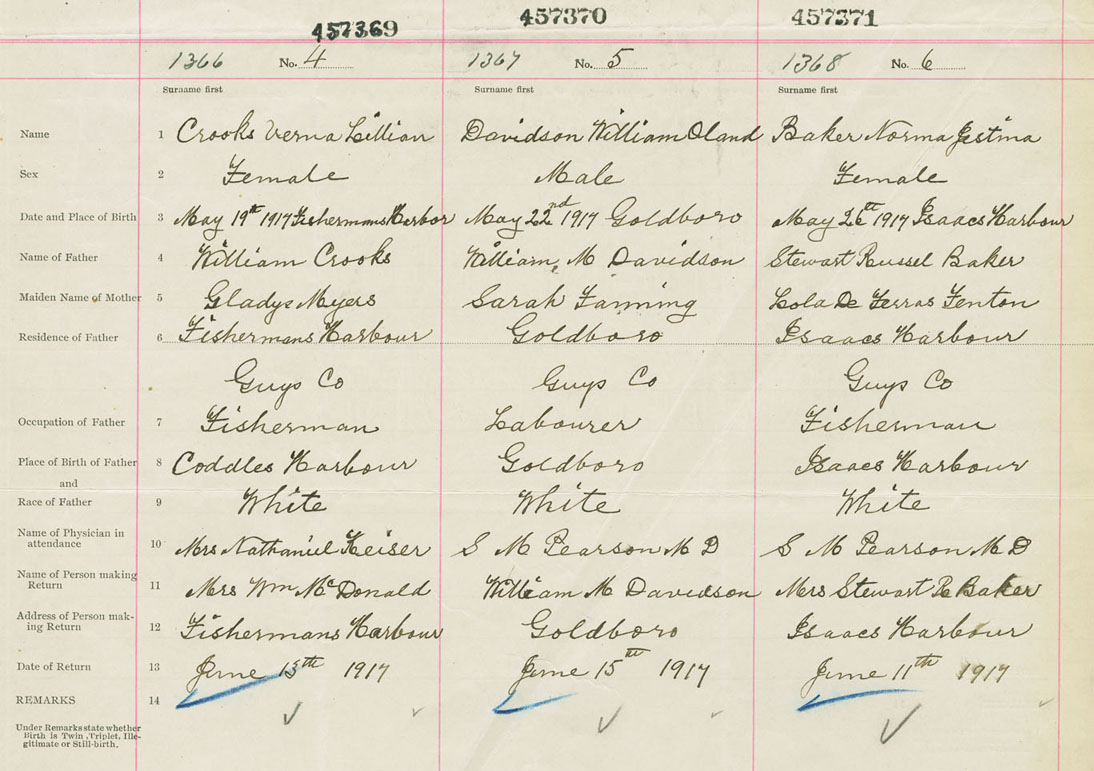 457369 457370 457371
1366 No. 4 1367 No. 5 1368 No. 6
Surname first Surname first Surname first
Name 1 Crooks Verna Lillian Davidson William Oland Baker Norma Jestina
Sex 2 Female Male Female
Date and Place of Birth 3 May 19th 1917 Fishermans Harbor May 22nd 1917 Goldboro May 26th 1917 Isaacs Harbour
Name of Father 4 William Crooks William M Davidson Stewart Russel Baker
Maiden Name of Mother 5 Gladys Myers Sarah Fanning Lola De Ferras Fenton
Residence of Father 6 Fishermans Harbour Goldboro Isaacs Harbour
Guys Co Guys Co Guys Co
Occupation of Father 7 Fisherman Labourer Fisherman
Place of Birth of Father 8 Coddles Harbour Goldboro Isaacs Harbour
and
Race of Father 9 White White White
Name of Physician in
attendance 10 Mrs Nathaniel Keiser S M Pearson M D S M Pearson M D
Name of Person making
Return 11 Mrs Wm McDonald William M Davidson Mrs Stewart R Baker
Address of Person mak-
ing Return 12 Fishermans Harbour Goldboro Isaacs Harbour
Date of Return 13 June 15th 1917 June 15th 1917 June 11th 1917
REMARKS 14
Under Remarks state whether
Birth is Twin, Triplet, Ille-
gitimate or Still-birth.